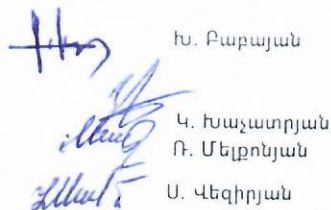 Խ. Բաբայան
Կ. Խաչատրյան
Ռ. Մելքոնյան
Ս. Վեզիրյան